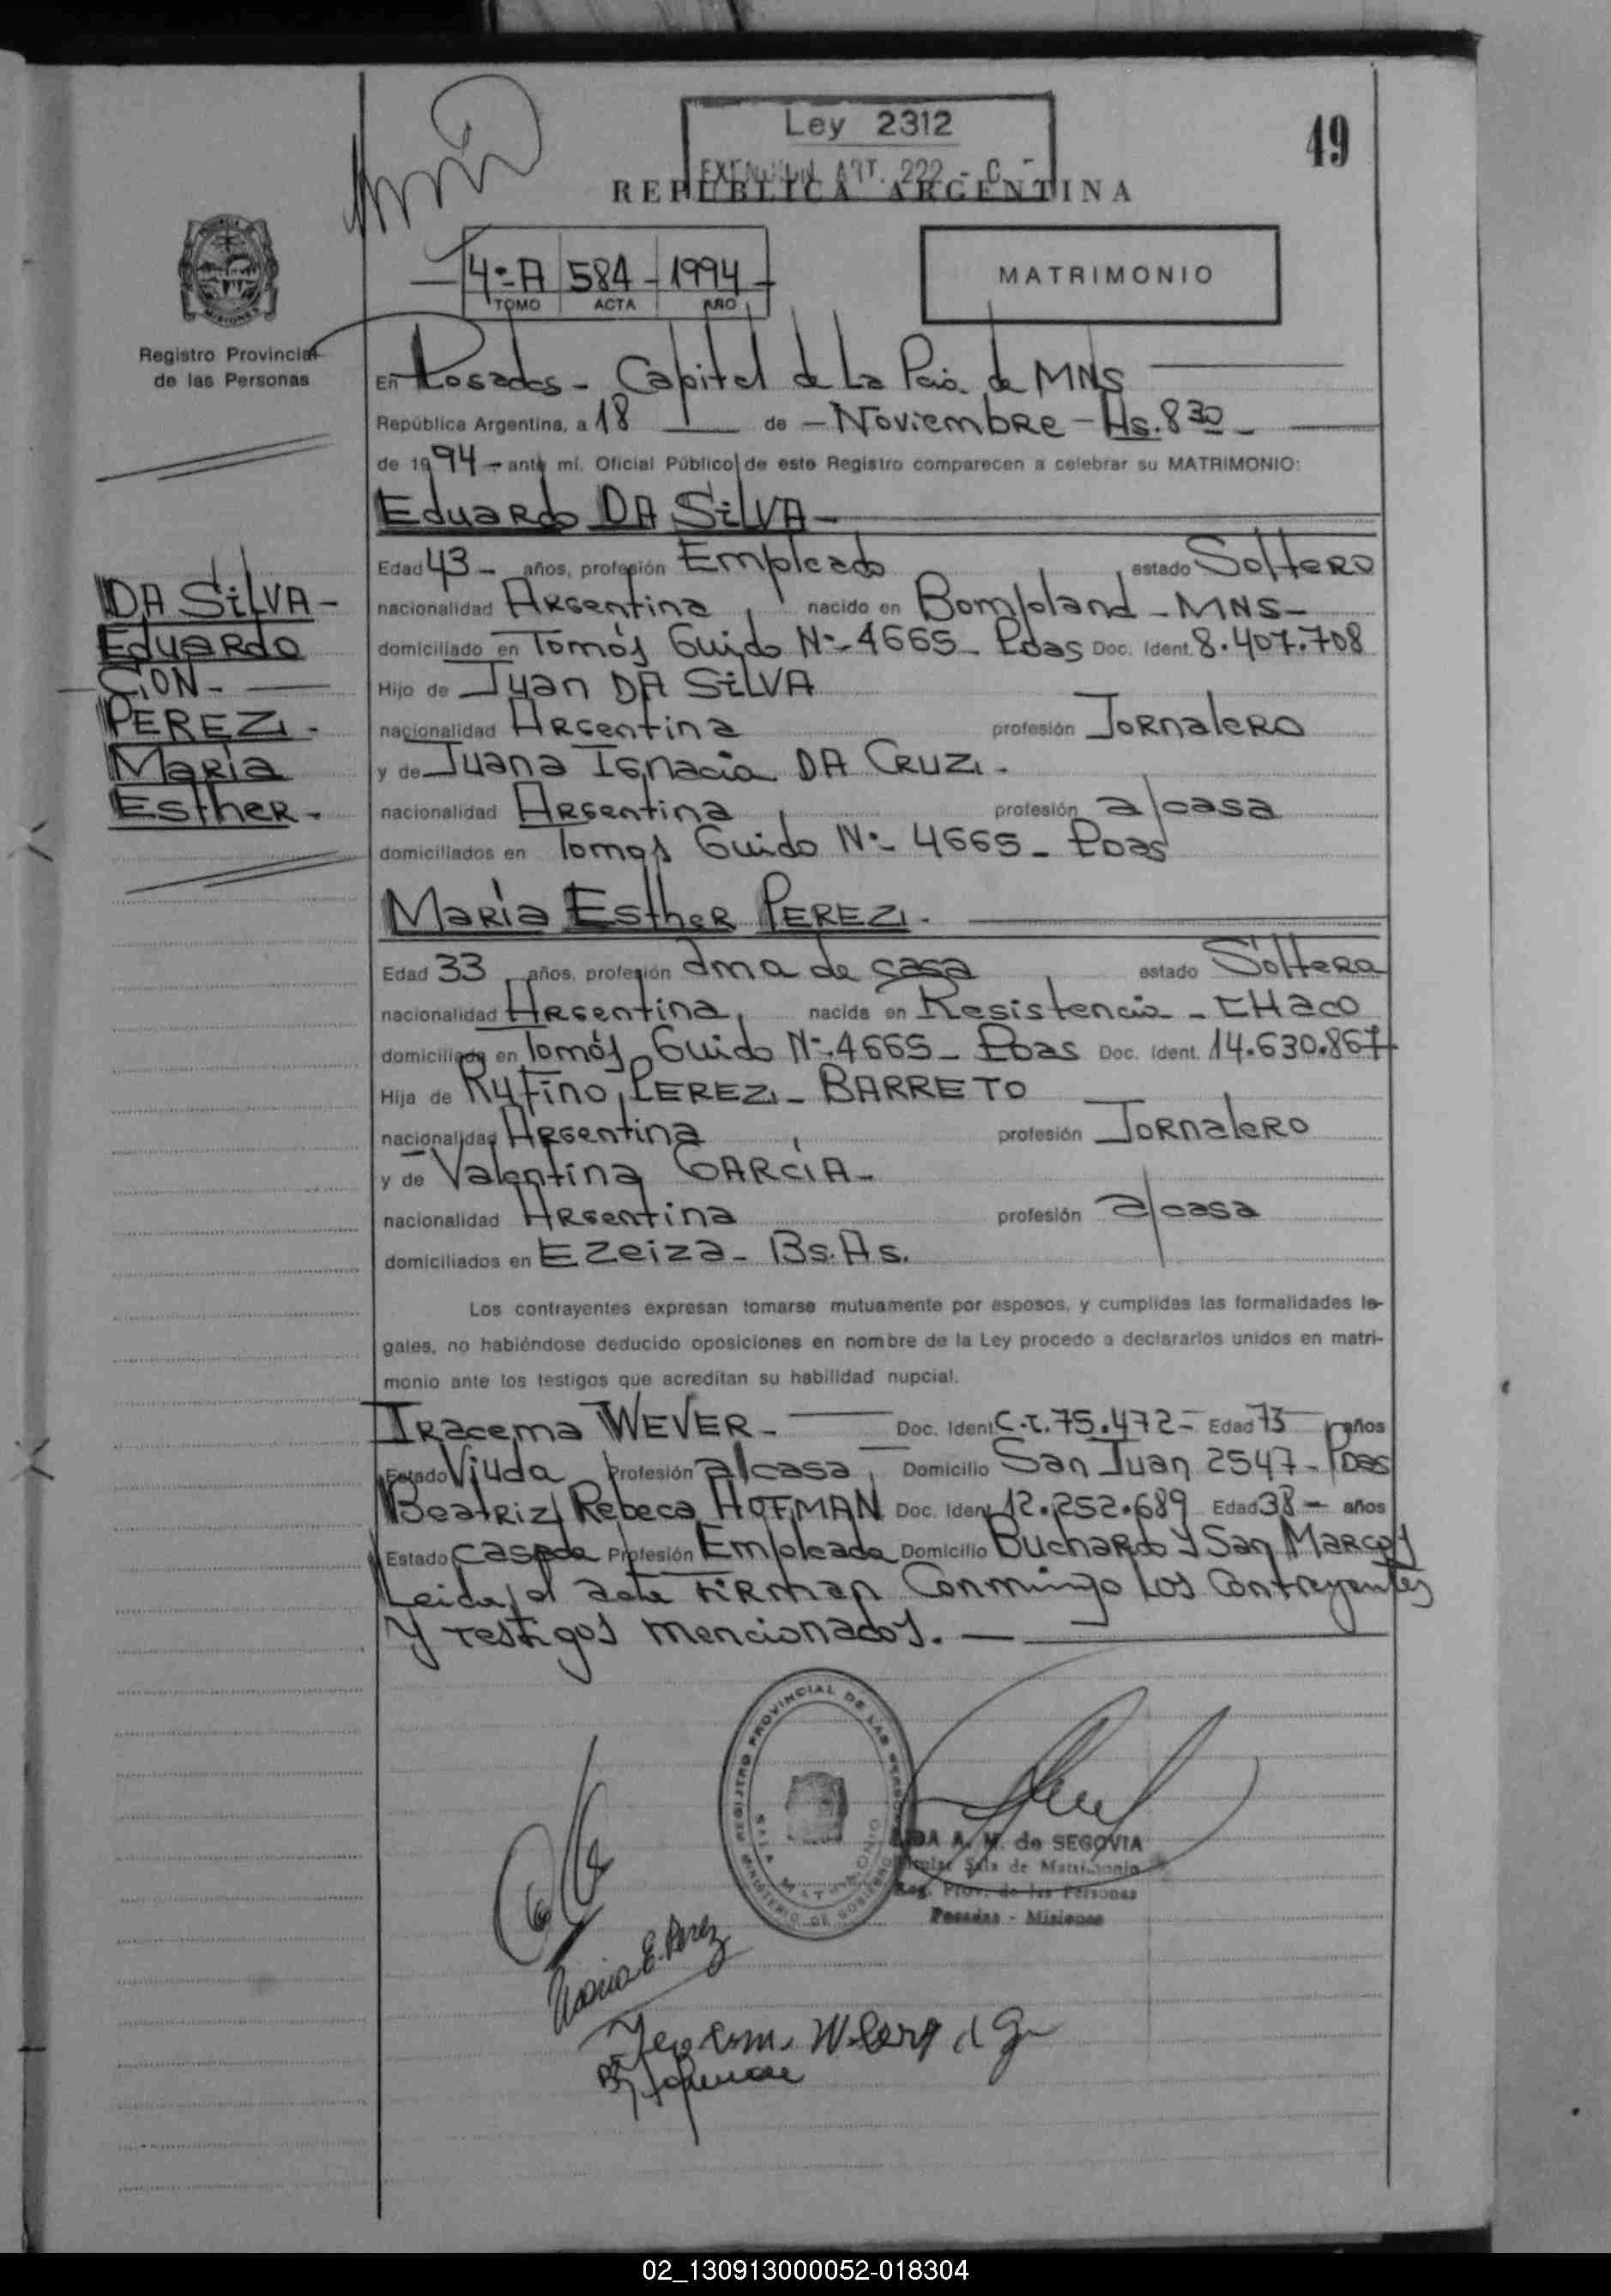 Ley 2312
49
EXENCION ART. 222 - C.
REPUBLICA ARGENTINA
4º A 584 - 1994
TOMO ACTA AÑO
MATRIMONIO
Registro Provincial
de las Personas
En Posadas - Capital de La Pcia de MNS
República Argentina, a 18 de - Noviembre - Hs. 8 30 -
de 1994 - ante mí. Oficial Público de este Registro comparecen a celebrar su MATRIMONIO:
Eduardo DA SiLVA -
Edad 43 - años, profesión Empleado estado Soltero
nacionalidad Argentina, nacido en Bompland - MNS -
domiciliado en Tomás Guido Nº 4665 - Pdas Doc. Ident. 8.407.708
Hijo de Juan DA SiLVA
nacionalidad Argentina profesión Jornalero
y de Juana Ignacia DA CRUZ.-
nacionalidad Argentina profesión a/casa
domiciliados en Tomas Guido Nº 4665 - Pdas
DA SiLVA -
Eduardo
CON -
PEREZ -
María
Esther -
María Esther PEREZ.-
Edad 33 años, profesión Ama de casa estado Soltera
nacionalidad Argentina, nacida en Resistencia - CHaco
domiciliada en Tomás Guido Nº 4665 - Pdas Doc. Ident. 14.630.867
Hija de Rufino PEREZ - BARRETO
nacionalidad Argentina profesión Jornalero
y de Valentina GARCíA -
nacionalidad Argentina profesión a/casa
domiciliados en Ezeiza - Bs. As.
Los contrayentes expresan tomarse mutuamente por esposos, y cumplidas las formalidades le-
gales, no habiéndose deducido oposiciones en nombre de la Ley procedo a declararlos unidos en matri-
monio ante los testigos que acreditan su habilidad nupcial.
Iracema WEVER - Doc. Ident. C.I. 75.472 - Edad 73 años
Estado Viuda Profesión a/casa, Domicilio San Juan 2547 - Pdas
Beatriz Rebeca HOFMAN Doc. Ident. 12.252.689 Edad 38 - años
Estado casada Profesión Empleada Domicilio Buchardo y San Marcos
Leida el acta FiRman Conmingo los Contrayentes
y testigos mencionados. -
REGISTRO PROVINCIAL DE LAS PERSONAS
SALA MATRIMONIO
MINISTERIO DE GOBIERNO
A. M. de SEGOVIA
Titular Sala de Matrimonio
Reg. Prov. de las Personas
Posadas - Misiones
Maria E. Perez
02_130913000052-018304